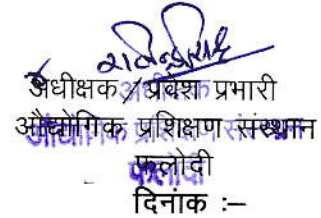 अधीक्षक / प्रवेश प्रभारी
औद्योगिक प्रशिक्षण संस्थान
फलोदी
दिनांक :–